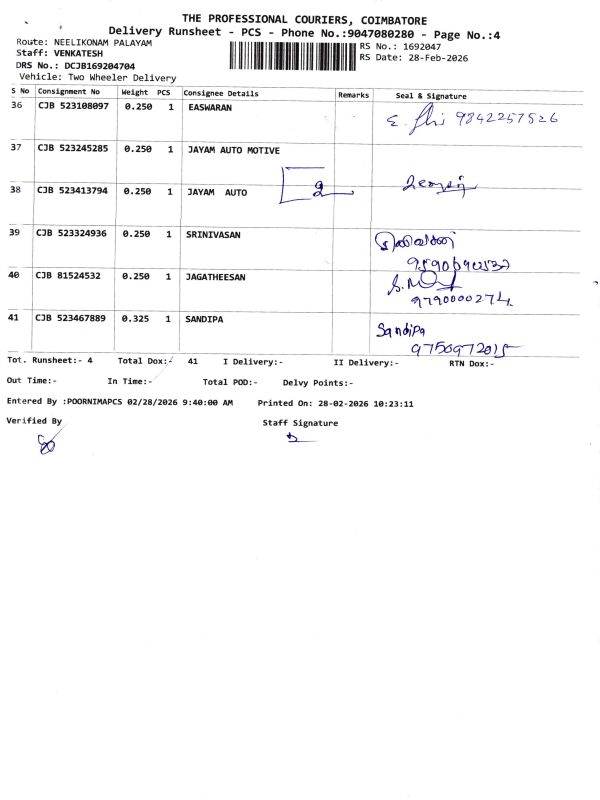 THE PROFESSIONAL COURIERS, COIMBATORE
Delivery Runsheet - PCS - Phone No.:9047080280 - Page No.:4
Route: NEELIKONAM PALAYAM
RS No.: 1692047
Staff: VENKATESH
RS Date: 28-Feb-2026
DRS No.: DCJB169204704
Vehicle: Two Wheeler Delivery
S No Consignment No Weight PCS Consignee Details Remarks Seal & Signature
36 CJB 523108097 0.250 1 EASWARAN 9842257526
37 CJB 523245285 0.250 1 JAYAM AUTO MOTIVE
38 CJB 523413794 0.250 1 JAYAM AUTO 2
39 CJB 523324936 0.250 1 SRINIVASAN
40 CJB 81524532 0.250 1 JAGATHEESAN
9790000274
41 CJB 523467889 0.325 1 SANDIPA Sandipa
9750972015
Tot. Runsheet:- 4 Total Dox:- 41 I Delivery:- II Delivery:- RTN Dox:-
Out Time:- In Time:- Total POD:- Delvy Points:-
Entered By :POORNIMAPCS 02/28/2026 9:40:00 AM Printed On: 28-02-2026 10:23:11
Verified By Staff Signature